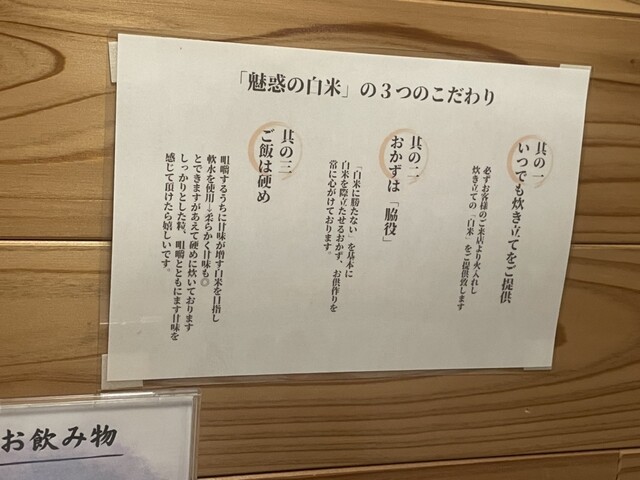 「魅惑の白米」の３つのこだわり
其の一
いつでも炊き立てをご提供
必ずお客様のご来店より火入れし
炊き立ての「白米」をご提供致します
其の二
おかずは「脇役」
「白米に勝たない」を基本に
白米を際立たせるおかず、お供作りを
常に心がけております。
其の三
ご飯は硬め
咀嚼するうちに甘味が増す白米を目指し
軟水を使用→柔らかく甘味も◎
とできますがあえて硬めに炊いております
しっかりとした粒、咀嚼とともにます甘味を
感じて頂けたら嬉しいです。
お飲み物